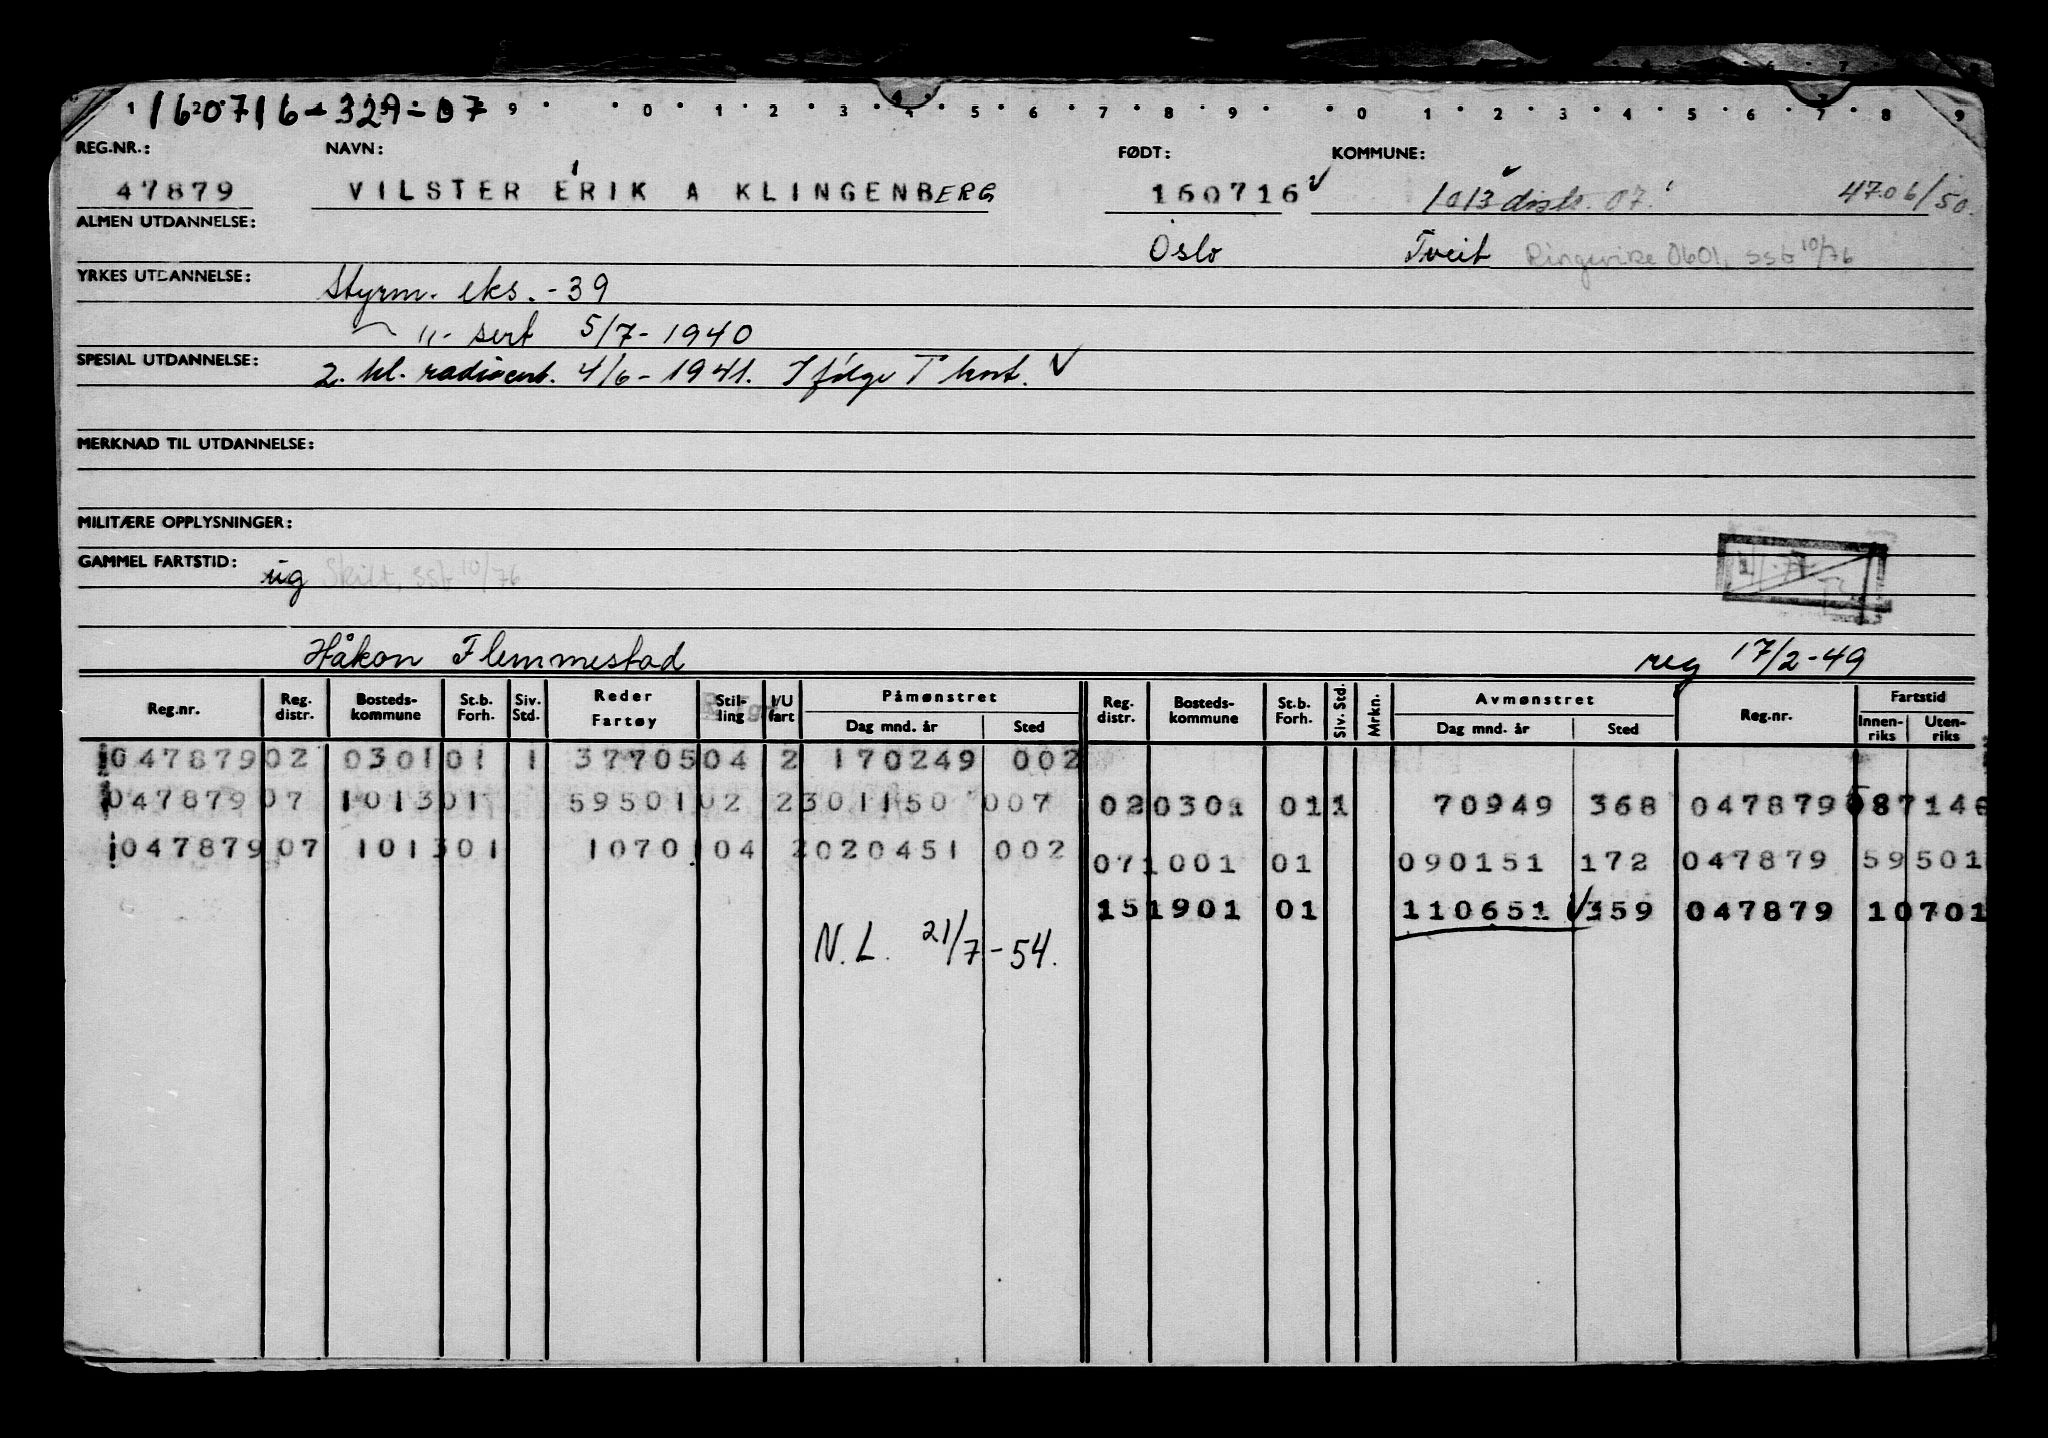 160716-329-07
REG.NR.: NAVN: FØDT: KOMMUNE:
47879 VILSTER ERIK A KLINGENBERG 160716 1013 distr. 07. 4706/50.
ALMEN UTDANNELSE: Oslo Tveit Ringerike 0601, ssb 10/76
YRKES UTDANNELSE: Styrm. eks. -39
— " - sert 5/7-1940
SPESIAL UTDANNELSE: 2. kl. radiosert. 4/6-1941. Ifølge T kort.
MERKNAD TIL UTDANNELSE:
MILITÆRE OPPLYSNINGER:
GAMMEL FARTSTID: ug Skilt, ssb 10/76
Håkon Flemmestad reg 17/2-49
Reg.nr. Reg. distr. Bosteds-kommune St.b. Forh. Siv. Std. Reder Fartøy Stil-ling I/U fart Påmønstret Dag mnd. år Sted Reg. distr. Bosteds-kommune St.b. Forh. Siv. Std. Mrkn. Avmønstret Dag mnd. år Sted Reg.nr. Fartstid Innen-riks Uten-riks
047879 02 0301 01 1 37705 04 2 170249 002
047879 07 1013 01 59501 02 2 301150 007 02 0301 01 1 70949 368 047879 587148
047879 07 1013 01 10701 04 2 020451 002 07 1001 01 090151 172 047879 59501
15 1901 01 110651 359 047879 10701
N.L. 21/7-54.